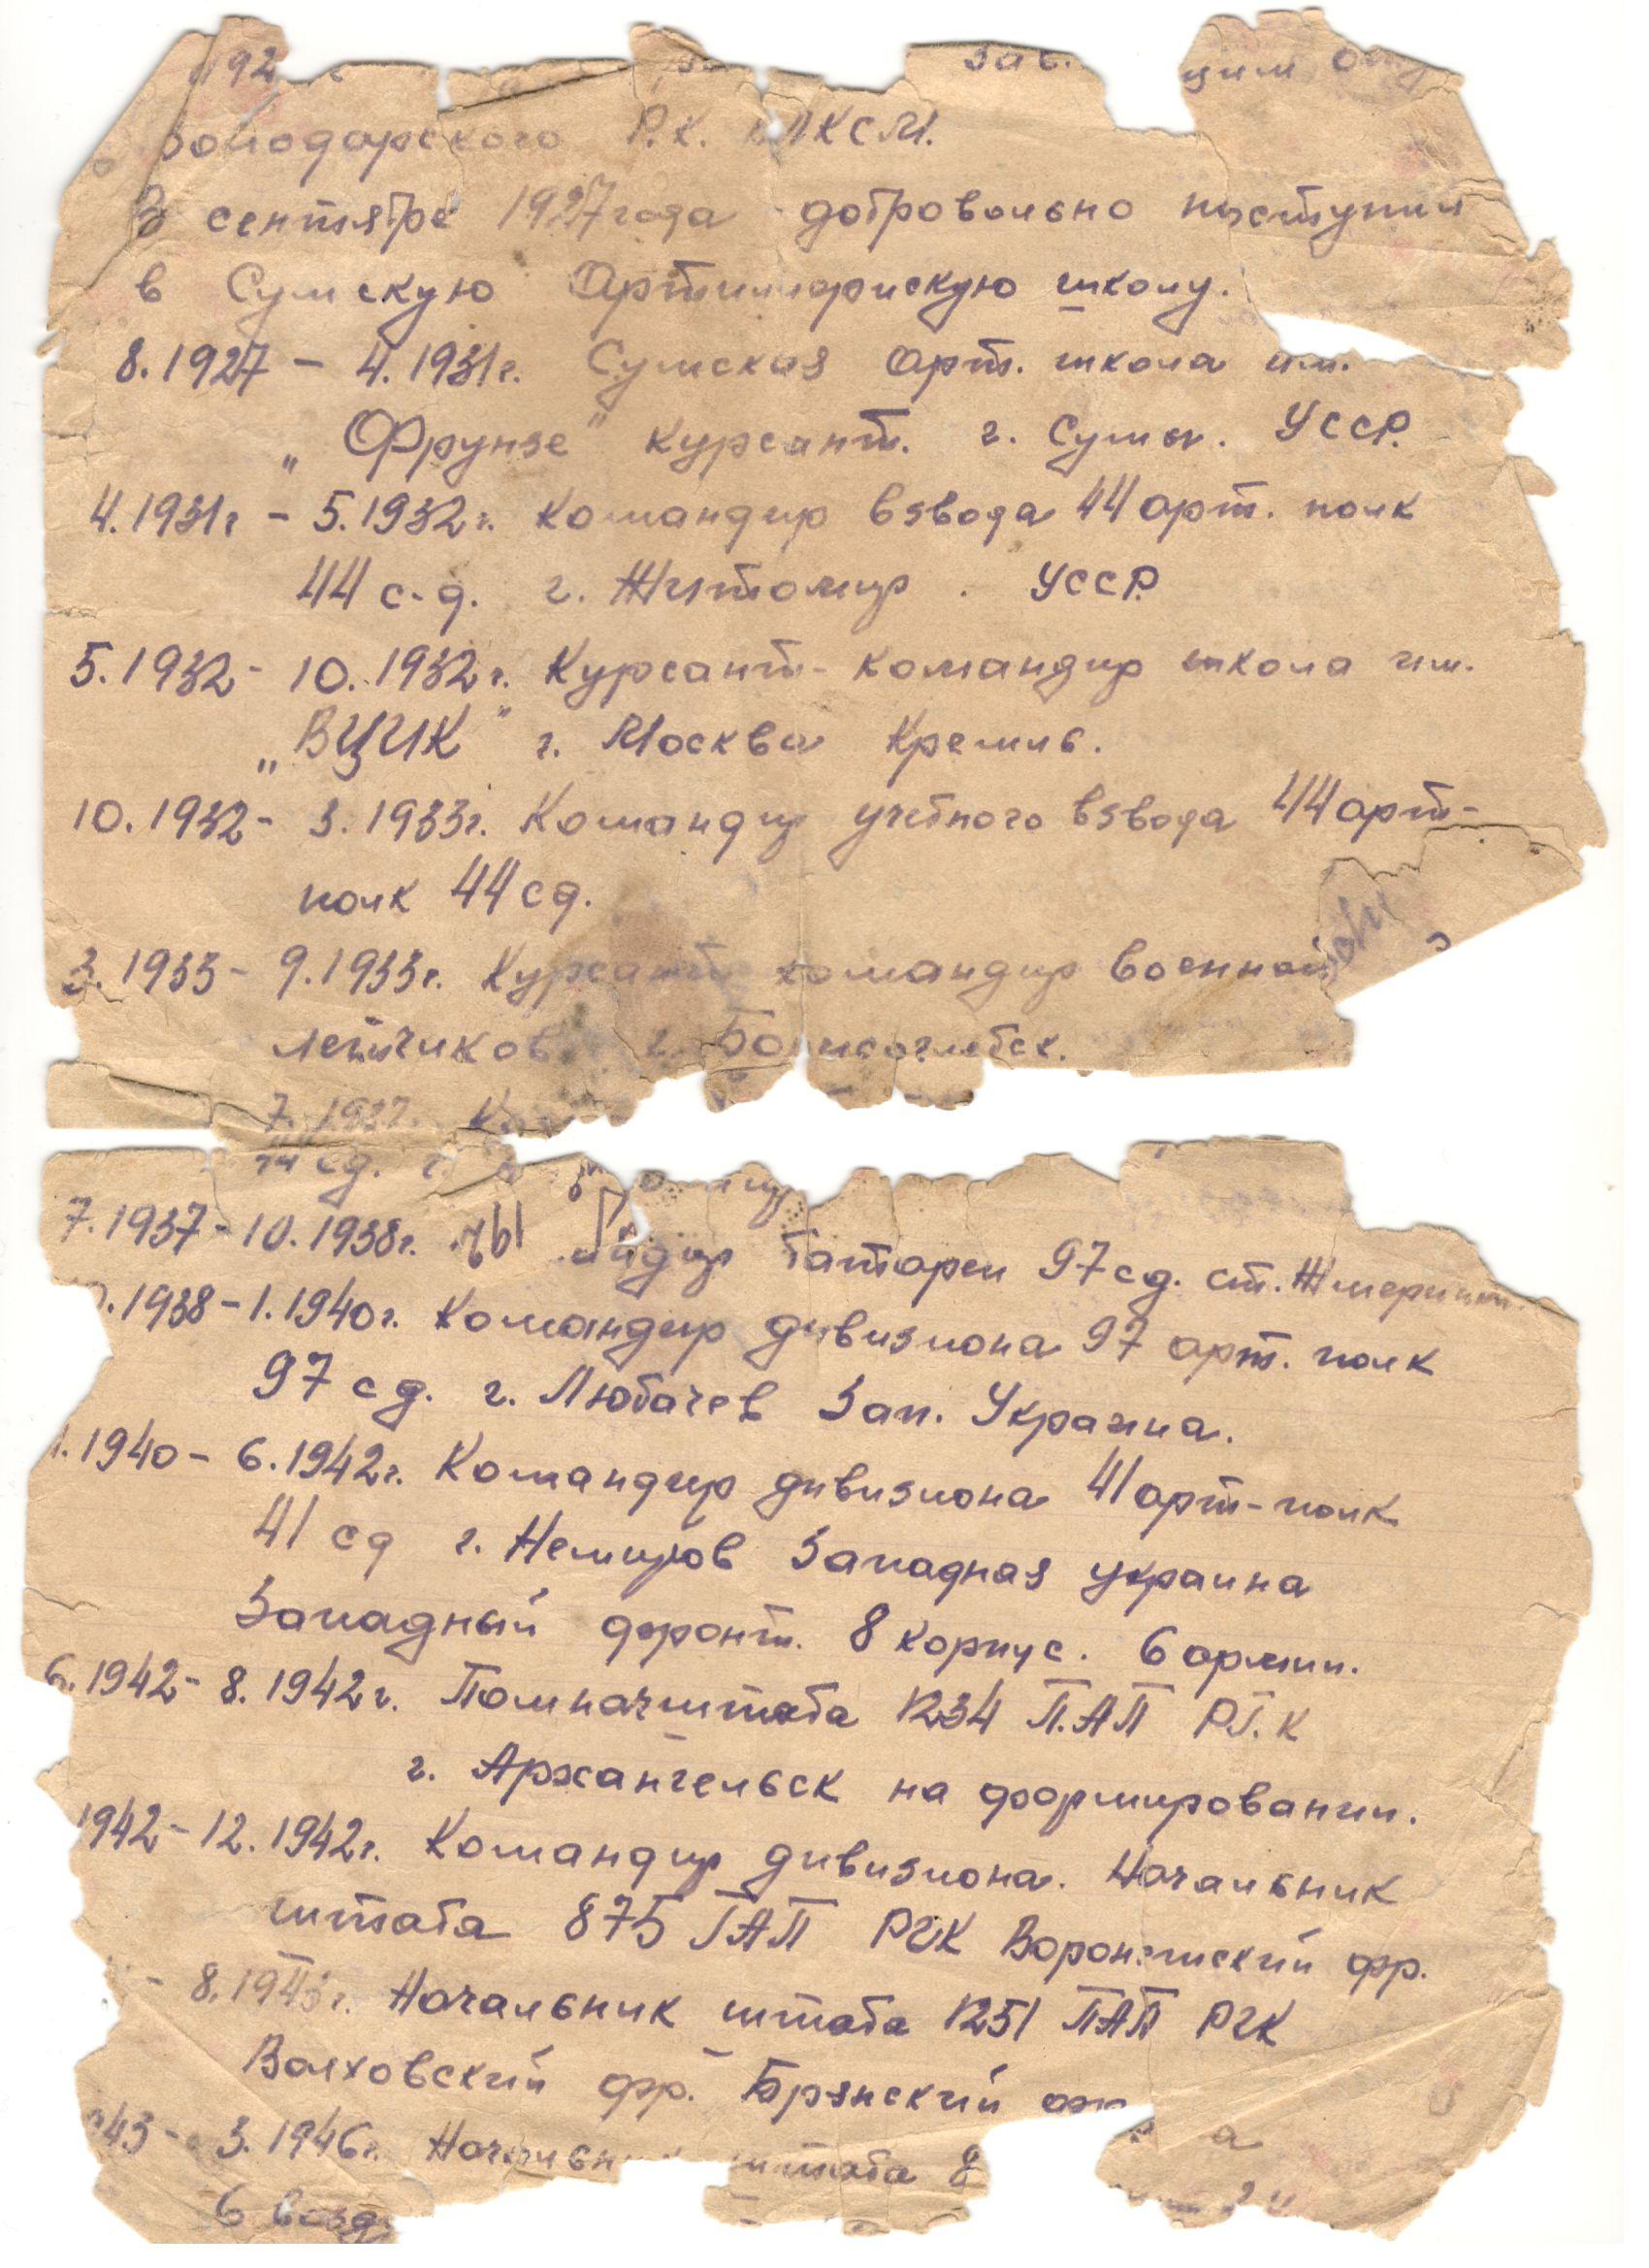 192
Р.К. ЛКСМ.
В сентябре 1927 года добровольно поступил
в Сумскую Артиллерискую школу.
8.1927 – 4.1931г. Сумская Арт. школа им.
„Фрунзе" курсант. г. Сумы. УССР.
4.1931г – 5.1932г. Командир взвода 44 арт. полк
44 с.д. г. Житомир. УССР.
5.1932 – 10.1932г. Курсант-командир школа им.
„ВЦИК" г. Москва Кремль.
10.1932 – 3.1933г. Командир учебного взвода 44 арт-
полк 44 сд.
3.1933 – 9.1933г. Курсант командир военной
летчиков г. Борисоглебск.
7.1937.
44 сд. г.
7.1937 – 10.1938г. батареи 97 сд. ст. Жмеринка.
.1938 – 1.1940г. Командир дивизиона 97 арт. полк
97 сд. г. Любачев Зап. Украина.
1.1940 – 6.1942г. Командир дивизиона 41 арт-полк
41 сд г. Немиров Западная украина
Западный фронт. 8 корпус. 6 армии.
6.1942 – 8.1942г. Помначштаба 1234 П.АП РГ.К
г. Архангельск на формировании.
1942 – 12.1942г. Командир дивизиона. Начальник
штаба 875 ГАП РГК Воронежский фр.
– 8.1943г. Начальник штаба 1251 ПАП РГК
Волховский фр. Брянский
43 – 3.1946г. Начальник штаба 8
6